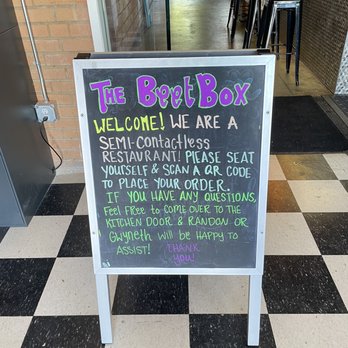 THE BEET BOX
WELCOME! WE ARE A
SEMI-CONTACTLESS
RESTAURANT! PLEASE SEAT
YOURSELF & SCAN A QR CODE
TO PLACE YOUR ORDER.
IF YOU HAVE ANY QUESTIONS,
FEEL FREE TO COME OVER TO THE
KITCHEN DOOR & RANDON OR
GWYNETH WILL BE HAPPY TO
ASSIST! THANK
YOU!